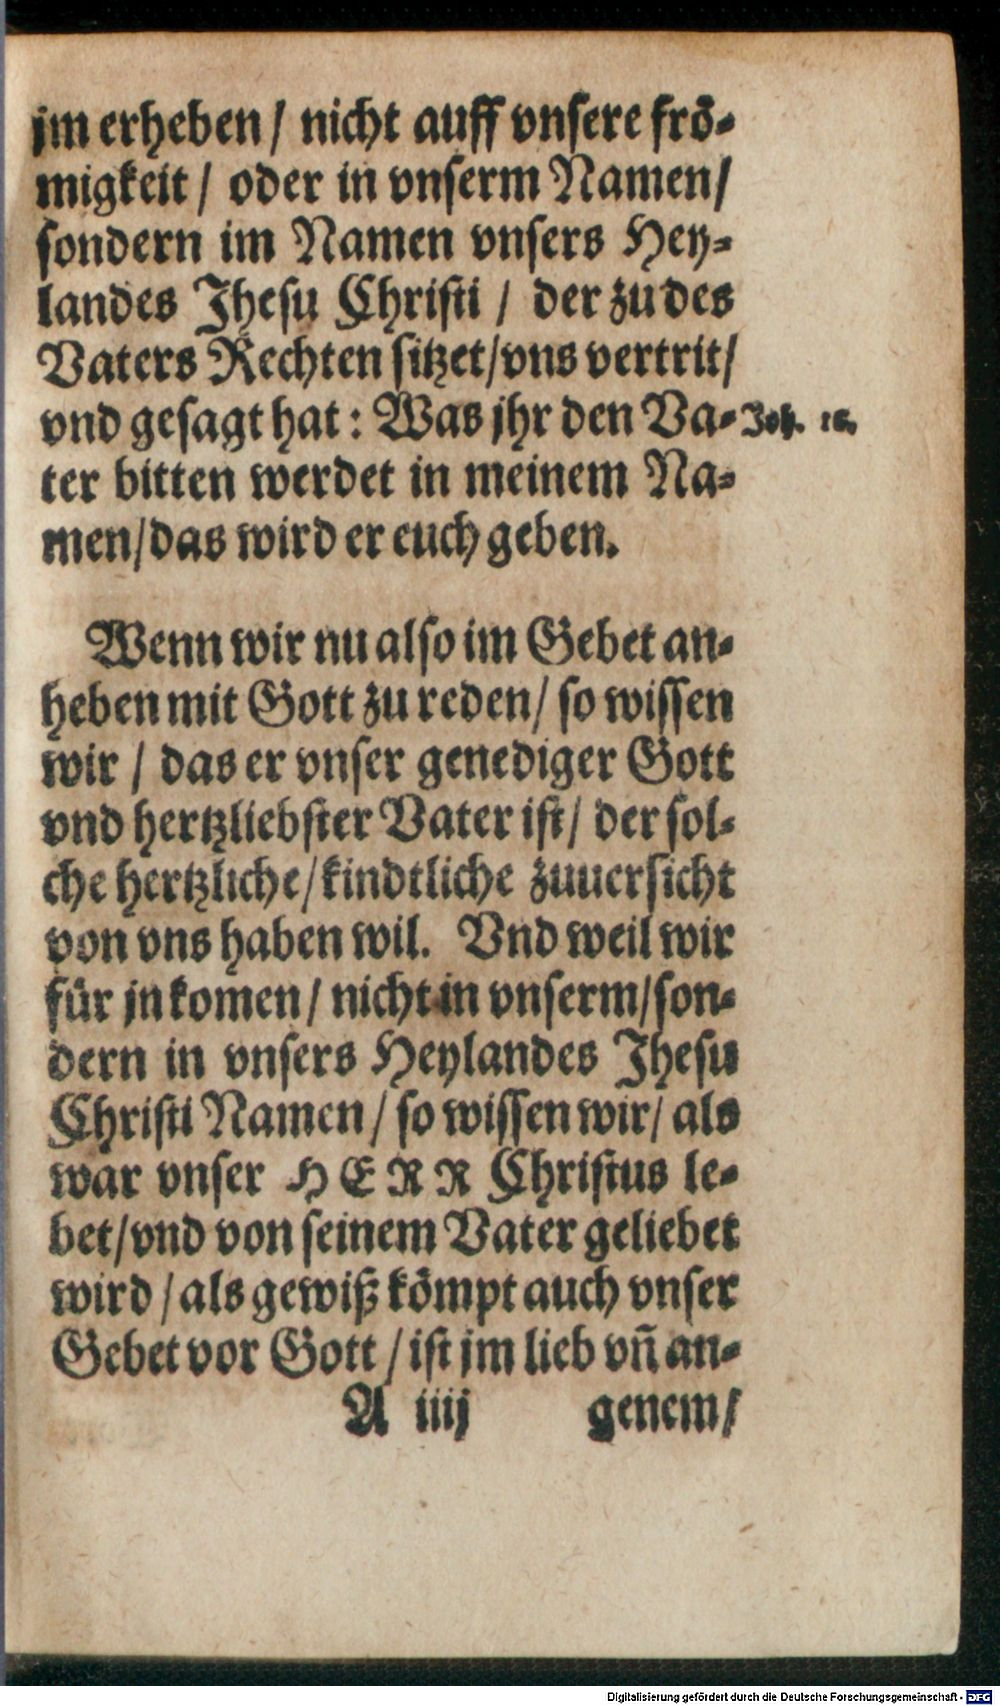 jm erheben / nicht auff vnsere frö-
migkeit / oder in vnserm Namen /
sondern im Namen vnsers Hey-
landes Jhesu Christi / der zu des
Vaters Rechten sitzet / vns vertrit /
vnd gesagt hat : Was jhr den Va- Joh. 16.
ter bitten werdet in meinem Na-
men / das wird er euch geben.
Wenn wir nu also im Gebet an-
heben mit Gott zu reden / so wissen
wir / das er vnser genediger Gott
vnd hertzliebster Vater ist / der sol-
che hertzliche / kindtliche zuuersicht
von vns haben wil. Vnd weil wir
für jn komen / nicht in vnserm / son-
dern in vnsers Heylandes Jhesu
Christi Namen / so wissen wir / als
war vnser HERR Christus le-
bet / vnd von seinem Vater geliebet
wird / als gewiß kömpt auch vnser
Gebet vor Gott / ist jm lieb vn̄ an-
A iiij genem /
Digitalisierung gefördert durch die Deutsche Forschungsgemeinschaft - DFG